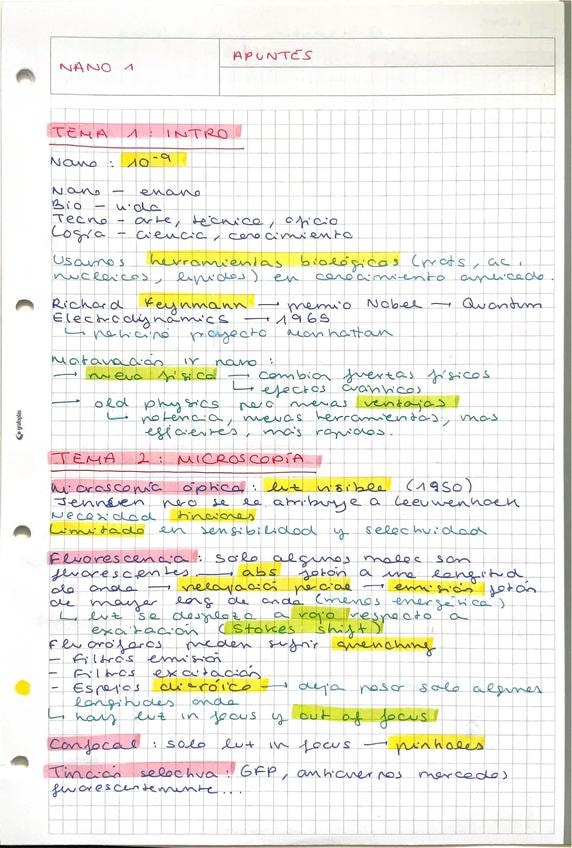 NANO 1
APUNTES
TEMA 1: INTRO
Nano: 10⁻⁹
Nano – enano
Bio – vida
Tecno – arte, técnica, oficio
Logía – ciencia, conocimiento
Usamos herramientas biológicas (prots, ac.
nucleicos, lípidos) en conocimiento aplicado.
Richard Feynmann → premio Nobel → Quantum
Electrodynamics → 1965
↳ participó proyecto Manhattan
Motivación ir nano:
→ nueva física → cambian fuerzas físicas
↳ efectos cuánticos
→ old physics pero nuevas ventajas
↳ potencia, nuevas herramientas, mas
eficientes, más rápidos.
TEMA 2: MICROSCOPÍA
Microscopía óptica: luz visible (1950)
Jenssen pero se le atribuye a Leeuwenhoek
Necesidad tinciones
Limitado en sensibilidad y selectividad
Fluorescencia: solo algunas molec son
fluorescentes → abs fotón a una longitud
de onda → relajación parcial → emisión fotón
de mayor long de onda (menos energética)
↳ luz se desplaza a rojo respecto a
excitación (Stokes shift)
Fluoróforos pueden sufrir quenching
– Filtros emisión
– Filtros excitación
– Espejos dicróico → deja pasar solo algunas
longitudes onda
↳ hay luz in focus y out of focus
Confocal: solo luz in focus → pinholes
Tinción selectiva: GFP, anticuerpos marcados
fluorescentemente...